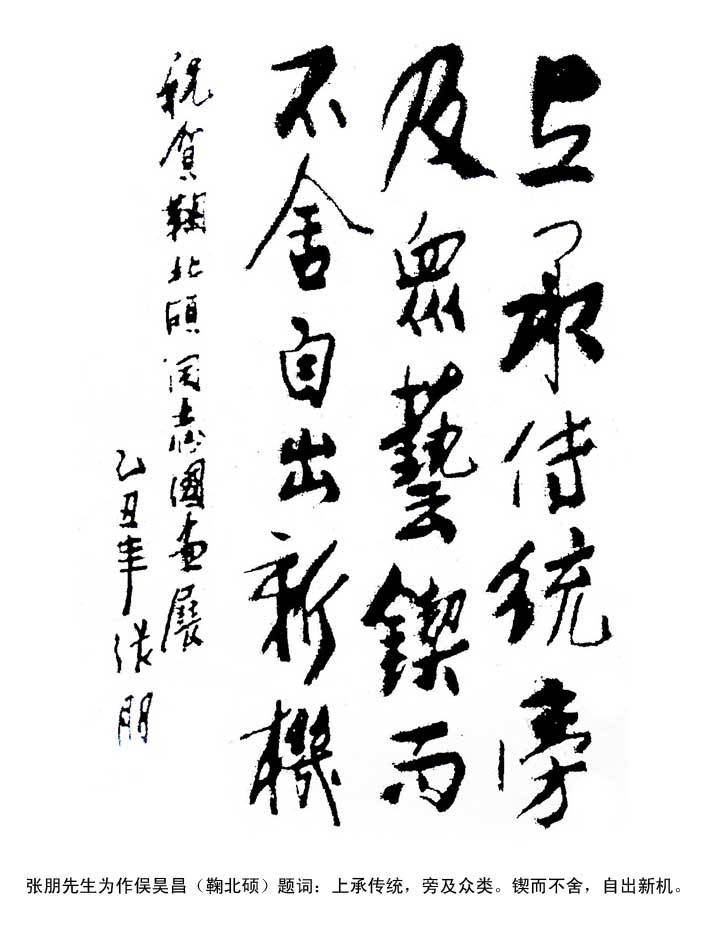 上承傳統傍
及眾藝鍥而
不舍自出新機
祝賀鞠北碩同志國畫展
乙丑年 張朋
张朋先生为作俣昊昌（鞠北硕）题词：上承传统，旁及众类。锲而不舍，自出新机。